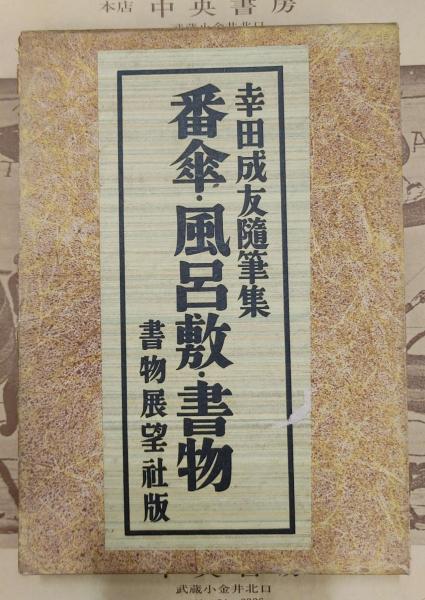 本店 中央書房
武蔵小金井北口
幸田成友隨筆集
番傘・風呂敷・書物
書物展望社版
中央書房
武蔵小金井北口